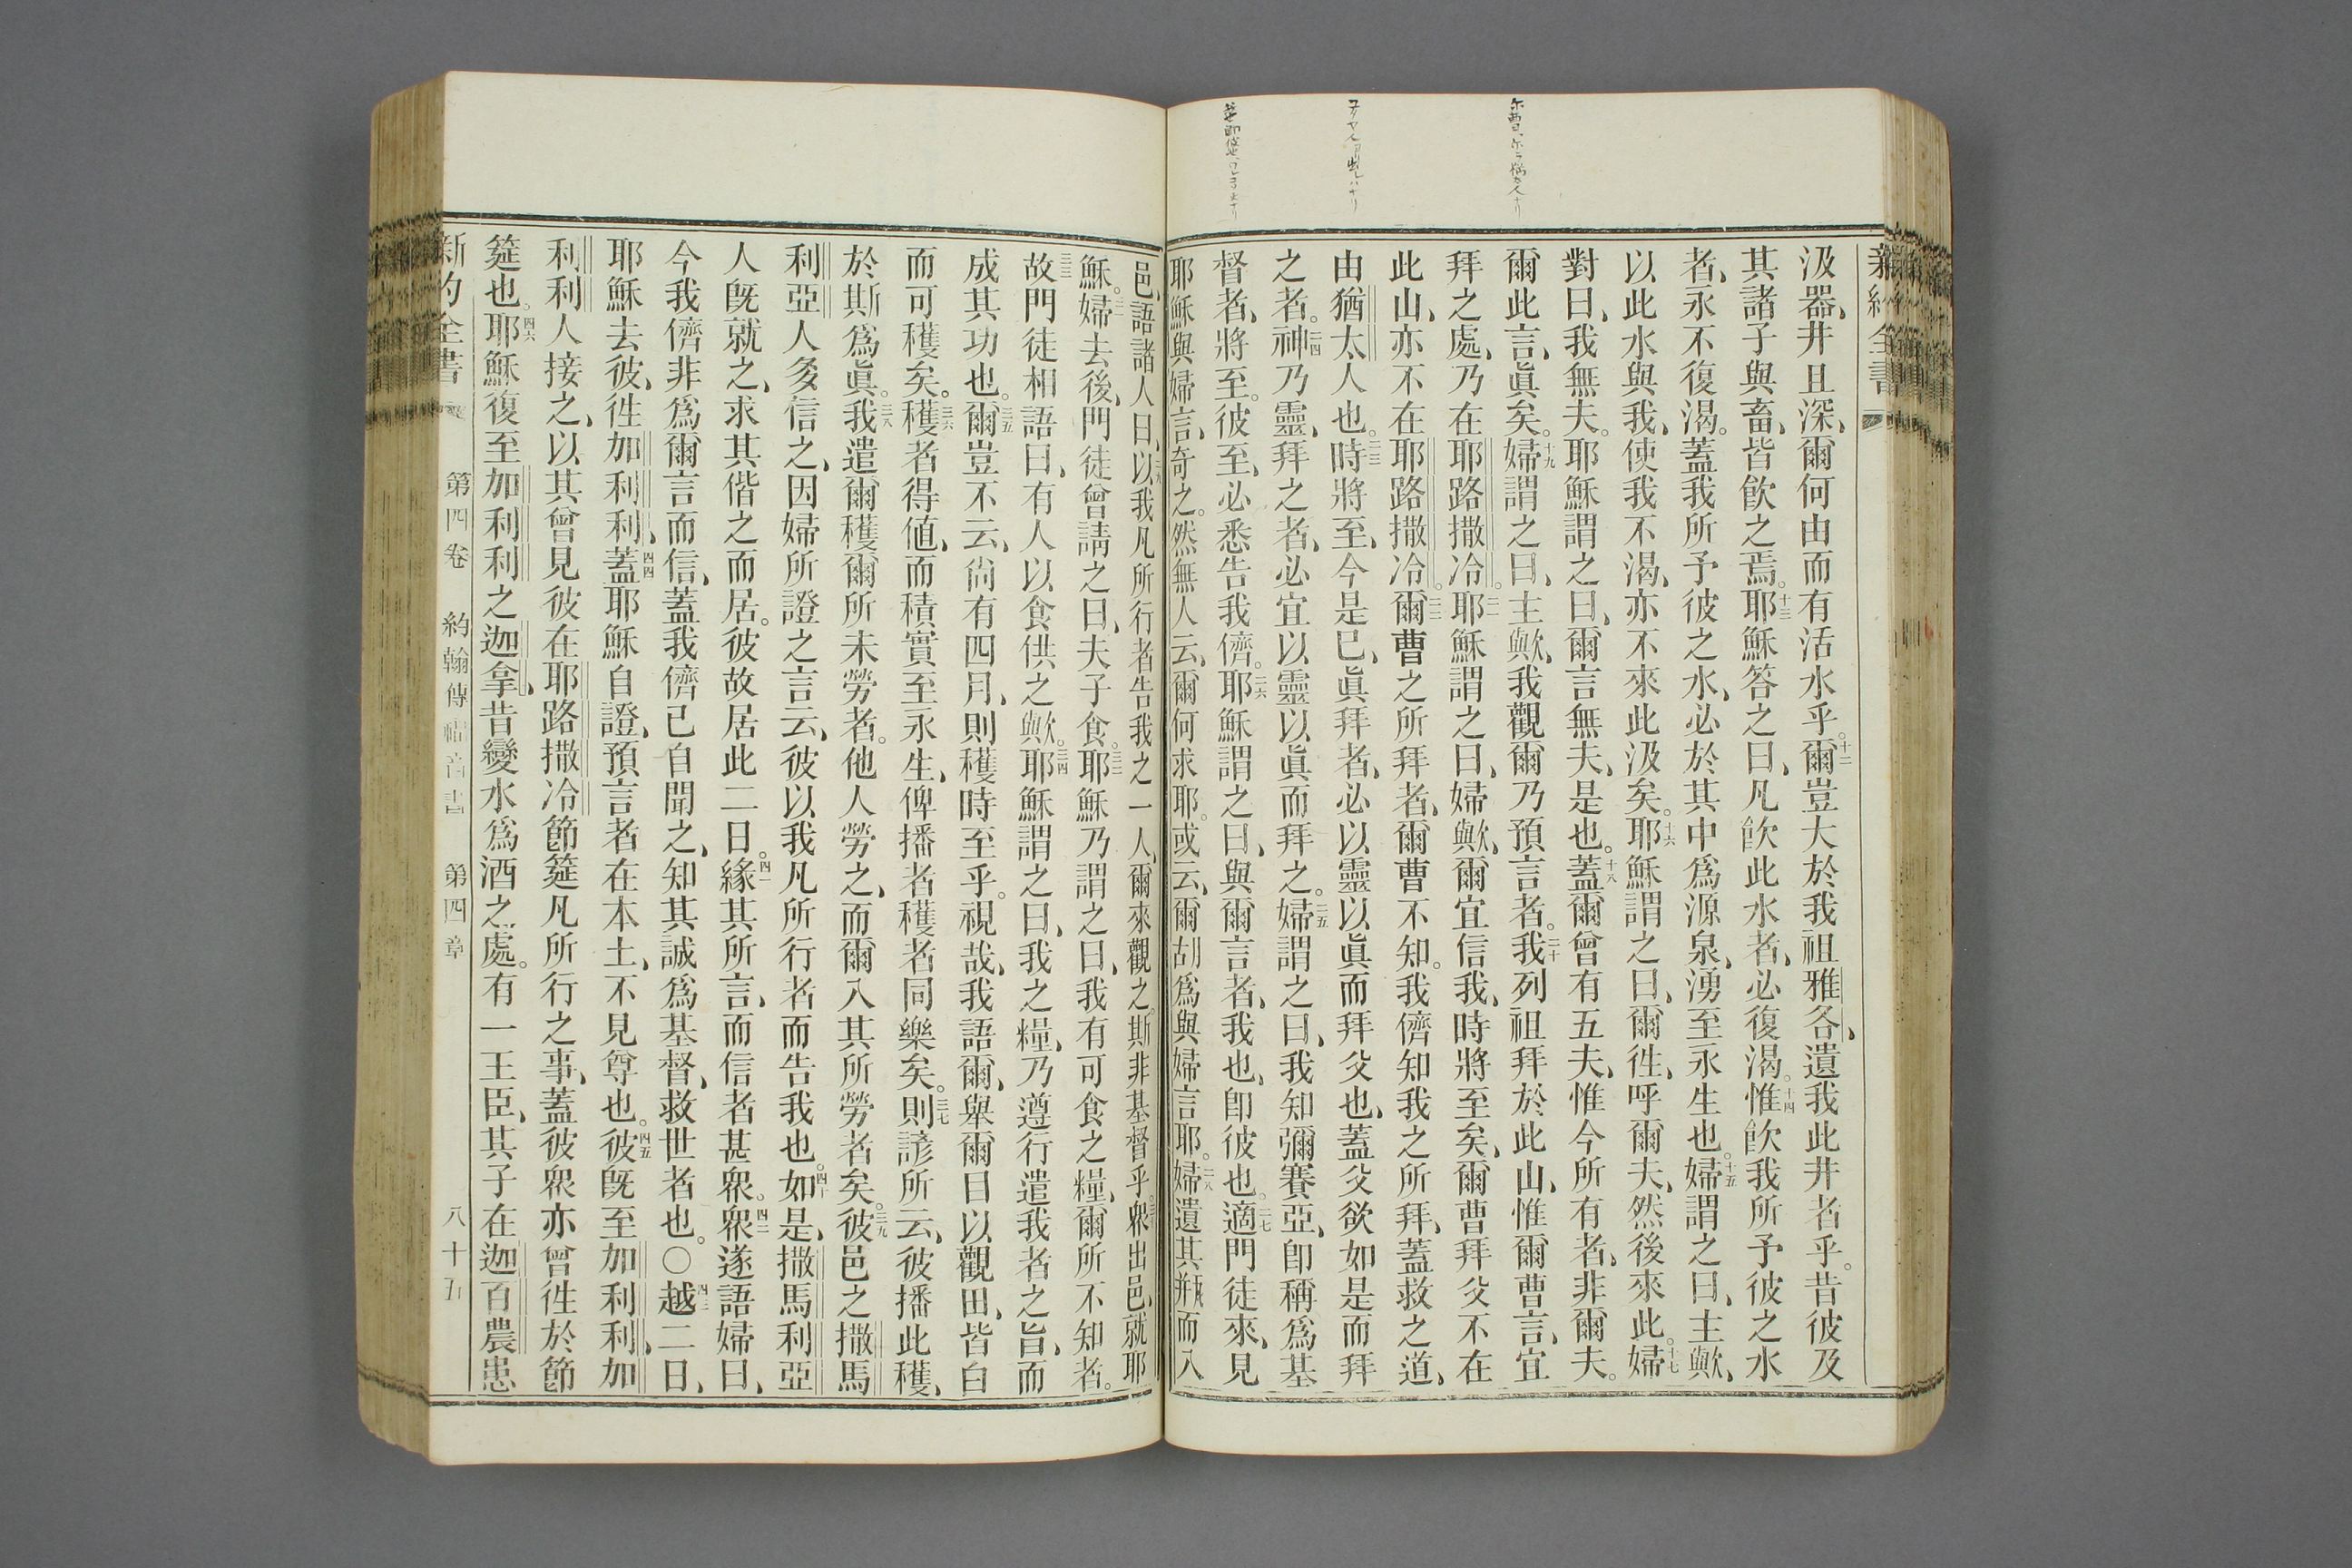 新約全書
汲器、井且深、爾何由而有活水乎。十二爾豈大於我祖雅各、遺我此井者乎。昔彼及
其諸子與畜、皆飮之焉。十三耶穌答之曰、凡飮此水者、必復渴。十四惟飮我所予彼之水
者、永不復渴。蓋我所予彼之水、必於其中爲源泉、湧至永生也。十五婦謂之曰、主歟、
以此水與我、使我不渴、亦不來此汲矣。十六耶穌謂之曰、爾徃、呼爾夫、然後來此。十七婦
對曰、我無夫。耶穌謂之曰、爾言無夫、是也。十八蓋爾曾有五夫、惟今所有者、非爾夫。
爾此言、眞矣。十九婦謂之曰、主歟、我觀爾乃預言者。二十我列祖拜於此山、惟爾曹言、宜
拜之處、乃在耶路撒冷。二一耶穌謂之曰、婦歟、爾宜信我、時將至矣、爾曹拜父不在
此山、亦不在耶路撒冷。二二爾曹之所拜者、爾曹不知。我儕知我之所拜、蓋救之道、
由猶太人也。二三時將至、今是已、眞拜者、必以靈以眞而拜父也、蓋父欲如是而拜
之者。二四神乃靈、拜之者、必宜以靈以眞而拜之。二五婦謂之曰、我知彌賽亞、卽稱爲基
督者、將至。彼至、必悉告我儕。二六耶穌謂之曰、與爾言者、我也、卽彼也。二七適門徒來、見
耶穌與婦言、奇之。然無人云、爾何求耶。或云、爾胡爲與婦言耶。二八婦遺其甁而入
邑、語諸人曰、二九以我凡所行者告我之一人、爾來觀之。斯非基督乎。三十衆出邑、就耶
穌。三一婦去後、門徒曾請之曰、夫子食。三二耶穌乃謂之曰、我有可食之糧、爾所不知者。
三三故門徒相語曰、有人以食供之歟。三四耶穌謂之曰、我之糧、乃遵行遣我者之旨、而
成其功也。三五爾豈不云、尙有四月、則穫時至乎。視哉、我語爾、舉爾目以觀田、皆白
而可穫矣。三六穫者得値、而積實至永生、俾播者穫者同樂矣。三七則諺所云、彼播此穫、
於斯爲眞。三八我遣爾穫爾所未勞者。他人勞之、而爾入其所勞者矣。三九彼邑之撒馬
利亞人多信之、因婦所證之言云、彼以我凡所行者而告我也。四十如是、撒馬利亞
人旣就之、求其偕之而居。彼故居此二日。四一緣其所言、而信者甚衆。四二衆遂語婦曰、
今我儕非爲爾言而信、蓋我儕已自聞之、知其誠爲基督、救世者也。○四三越二日、
耶穌去彼、徃加利利、四四蓋耶穌自證、預言者在本土、不見尊也。四五彼旣至加利利、加
利利人接之、以其曾見彼在耶路撒冷節筵凡所行之事、蓋彼衆亦曾徃於節
筵也。四六耶穌復至加利利之迦拿、昔變水爲酒之處。有一王臣、其子在迦百農患
新約全書 第四卷 約翰傳福音書 第四章 八十五